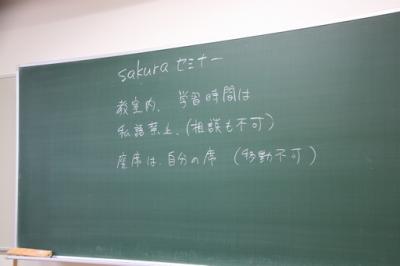 sakura セミナー
教室内、学習時間は
私語禁止、(相談も不可)
座席は、自分の席 (移動不可)